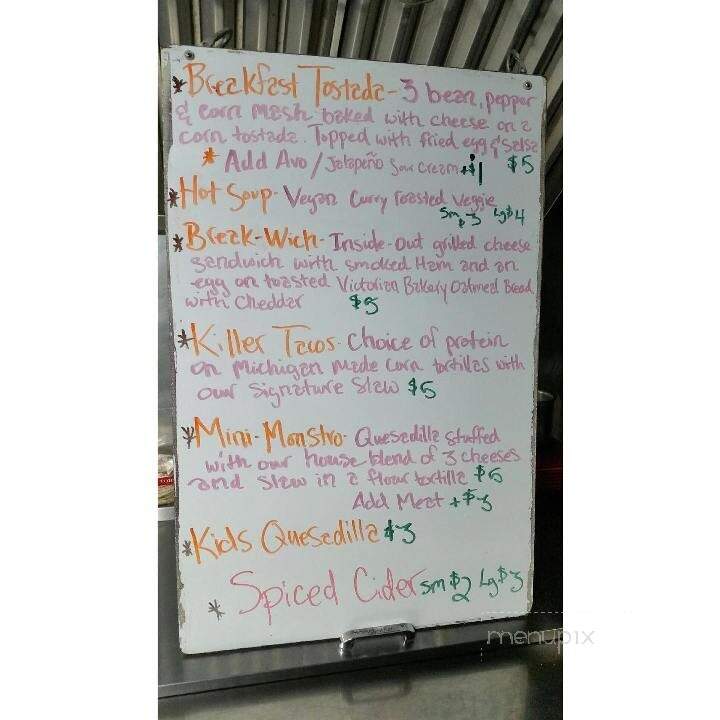 * Breakfast Tostada - 3 bean, pepper
& corn mash baked with cheese on a
corn tostada. Topped with fried egg & Salsa
* Add Avo / Jalapeño Sour Cream +$1 $5
* Hot Soup - Vegan Curry roasted veggie
Sm $3 Lg $4
* Break-Wich - Inside-Out grilled cheese
sandwich with smoked Ham and an
egg on toasted Victorian Bakery Oatmeal Bread
with Cheddar $5
* Killer Tacos - Choice of protein
on Michigan made Corn tortillas with
our Signature Slaw $6
* Mini-Monstro - Quesadilla stuffed
with our house blend of 3 cheeses
and Slaw in a flour tortilla $6
Add Meat +$3
* Kids Quesadilla $3
* Spiced Cider Sm $2 Lg $3
menupix